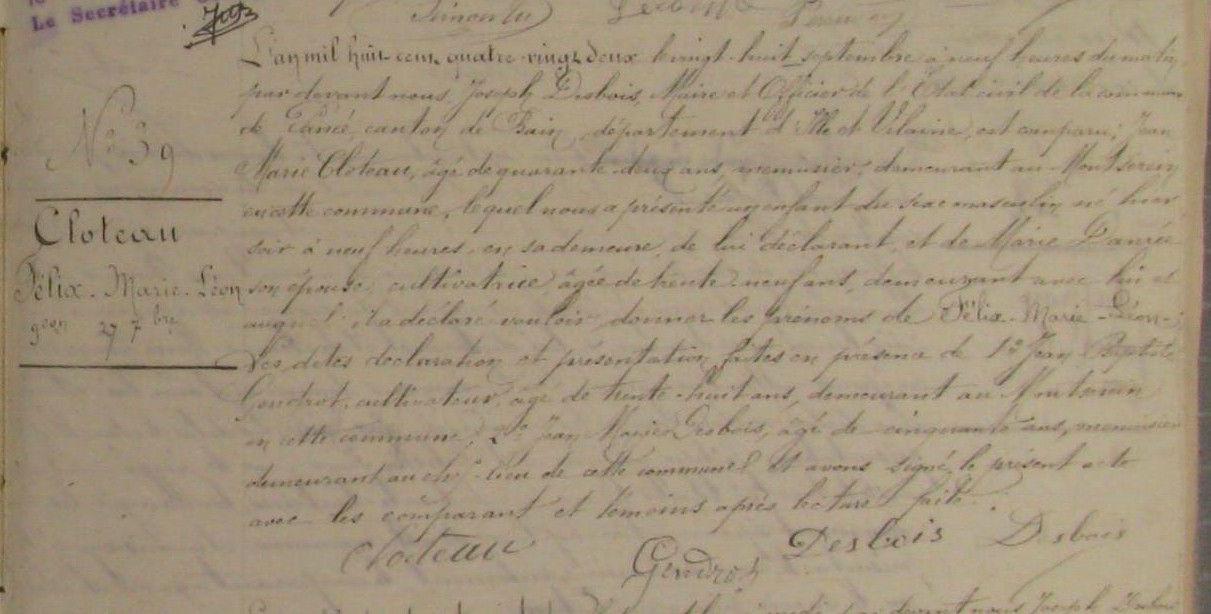 Le Secrétaire
L'an mil huit cent quatre-vingt deux le vingt-huit septembre à neuf heures du matin
par devant nous, Joseph Desbois, Maire et Officier de l'Etat civil de la commune
de Lancé, canton de Bain, département d'Ille et Vilaine, est comparu, Jean
Marie Cloteau, âgé de quarante-deux ans, menuisier, demeurant au Montserin
en cette commune, lequel nous a présenté un enfant du sexe masculin né hier
soir à neuf heures, en sa demeure, de lui déclarant, et de Marie
son épouse, cultivatrice âgée de trente-neuf ans, demeurant avec lui et
auquel il a déclaré vouloir donner les prénoms de Félix-Marie-Léon.
Les dites déclaration et présentation faites en présence de 1º Jean Baptiste
Gendrot, cultivateur, âgé de trente-huit ans, demeurant au
en cette commune, 2º Jean Marie Desbois, âgé de cinquante ans, menuisier
demeurant au ch. lieu de cette commune. Et avons signé le présent acte
avec les comparant et témoins après lecture faite.
Nº 39
Cloteau
Félix-Marie-Léon
27 7bre
Cloteau
Gendrot
Desbois
Desbois